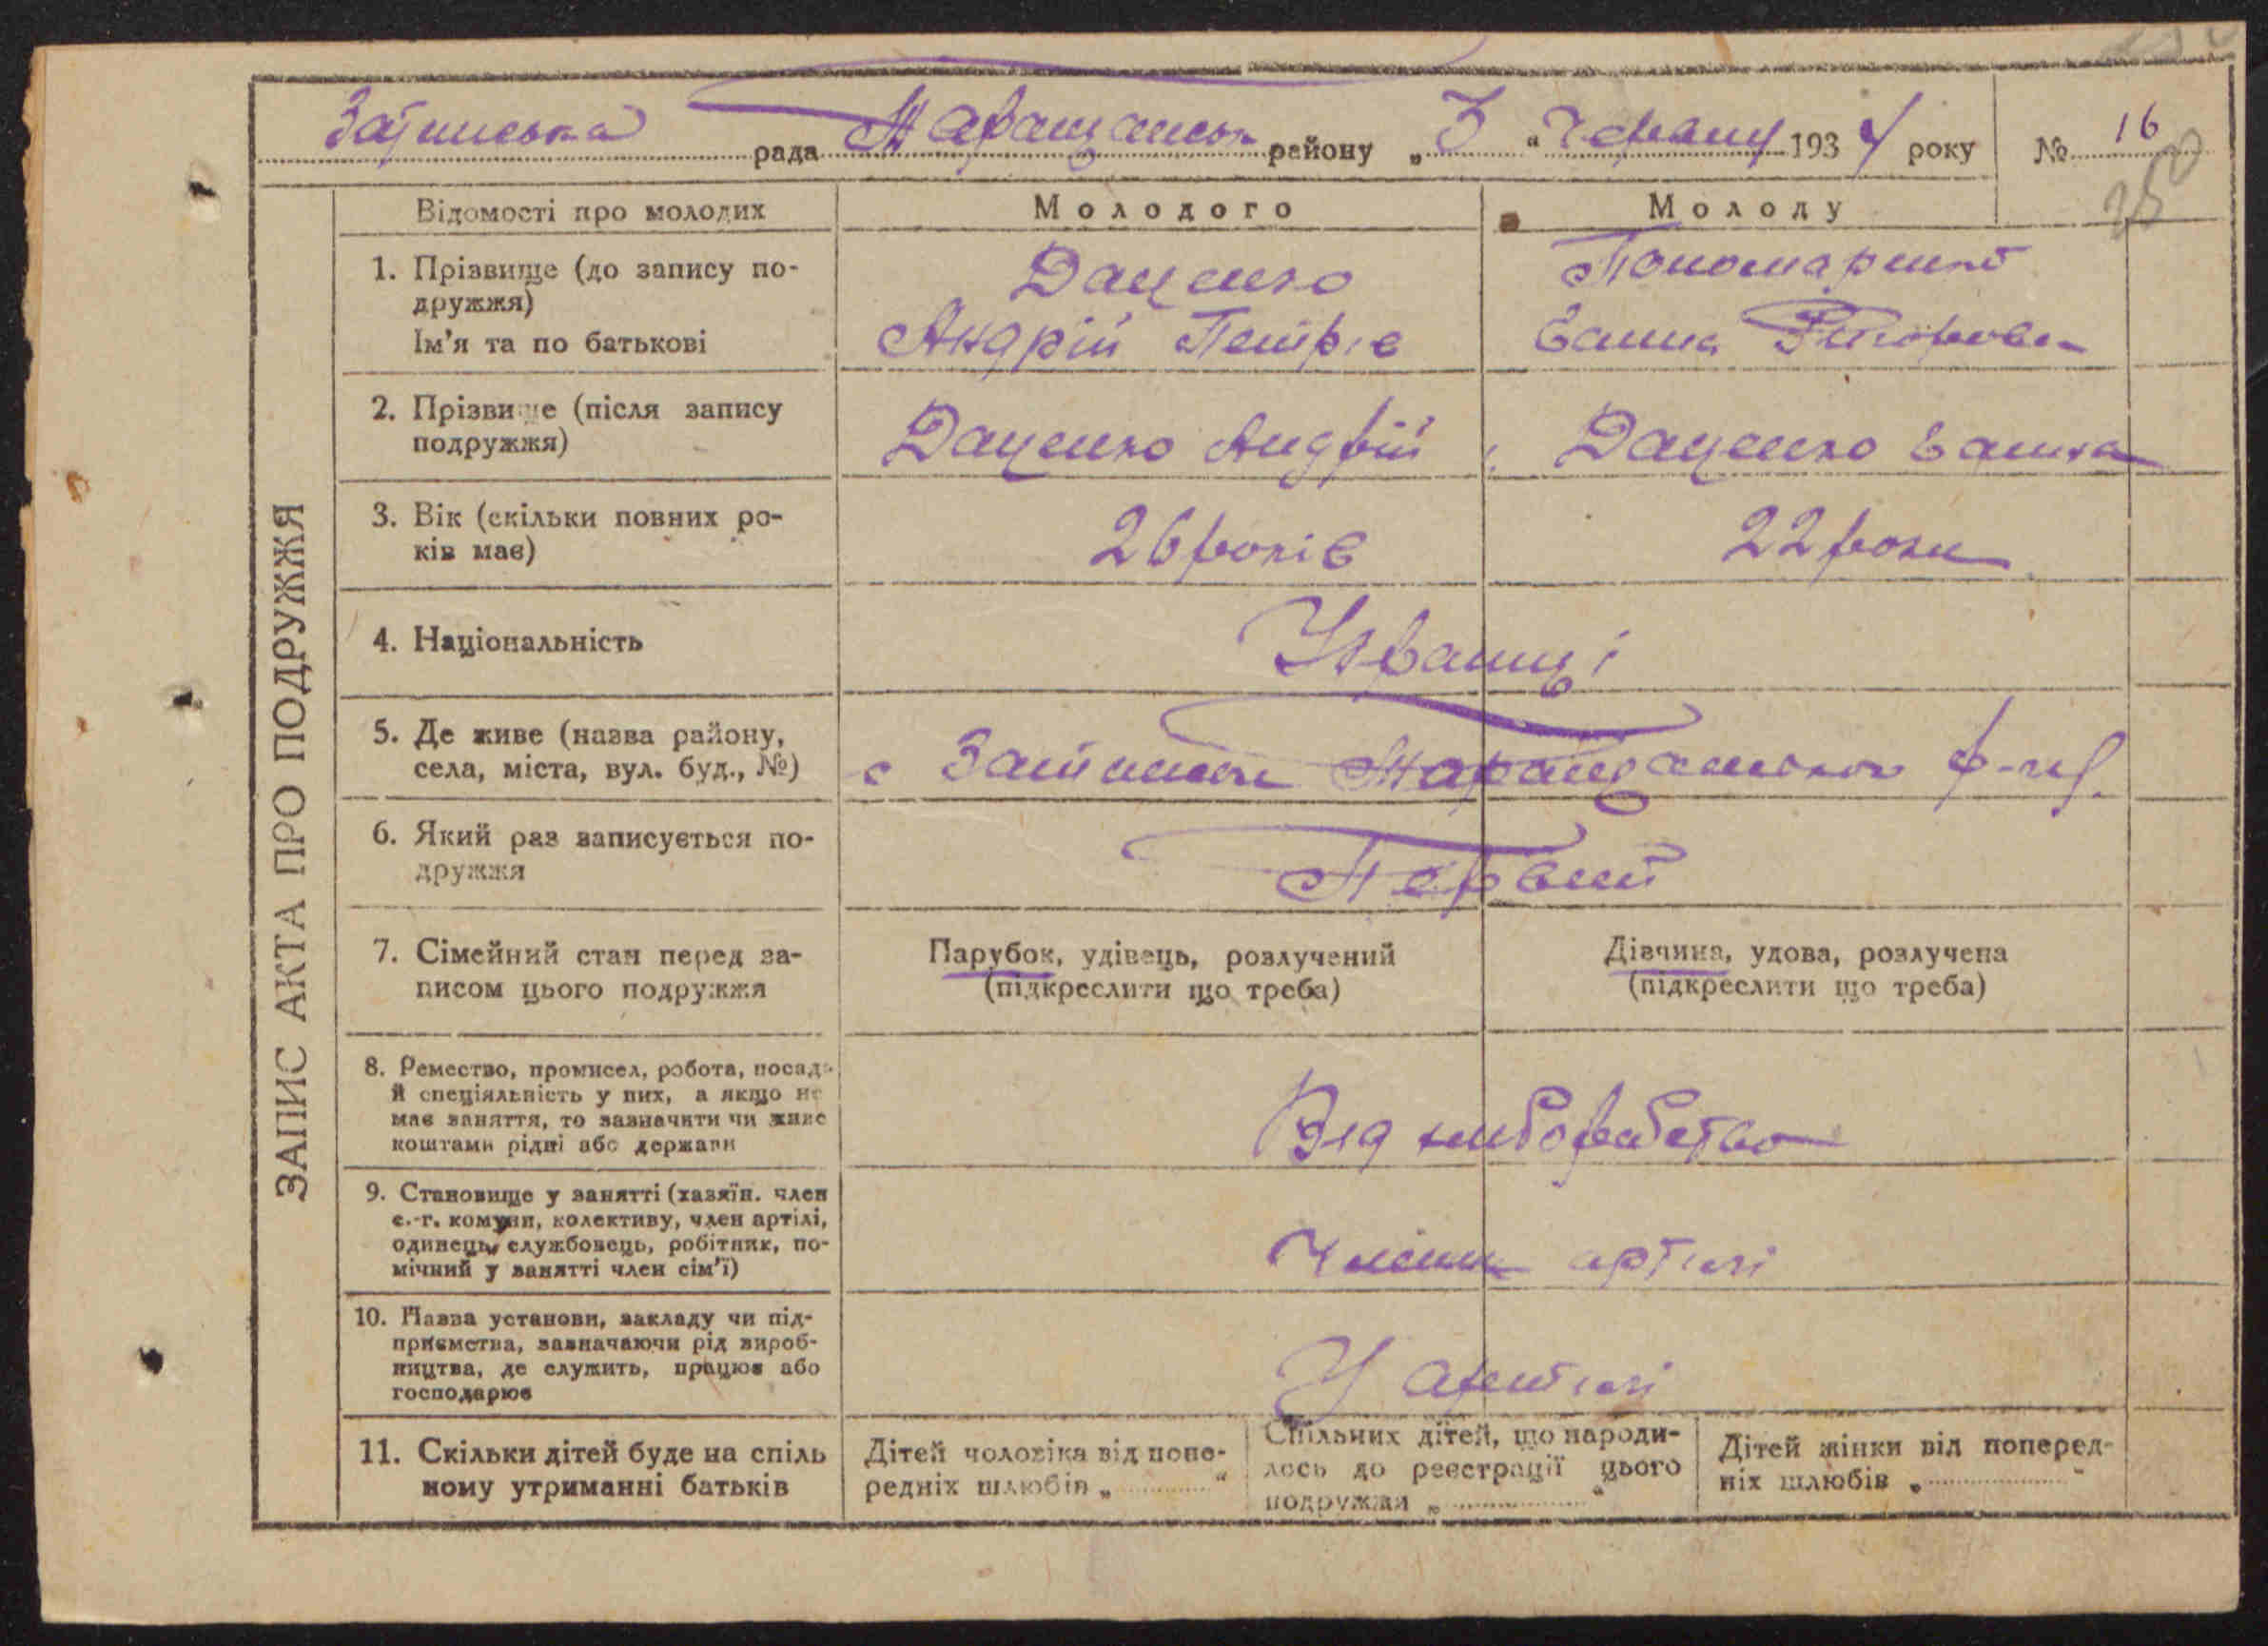 Затинська рада Таращанськ району „3“ червню 1934 року № 16
ЗАПИС АКТА ПРО ПОДРУЖЖЯ
Відомості про молодих
Молодого
Молоду
1. Прізвище (до запису по-
дружжя)
Ім'я та по батькові
Даценко
Андрій Петрів
Пономаренко
Ганна
2. Прізвище (після запису
подружжя)
Даценко Андрій
Даценко Ганна
3. Вік (скільки повних ро-
ків має)
26 років
22 роки
4. Національність
Українці
5. Де живе (назва району,
села, міста, вул. буд., №)
с Таращанського р-ну
6. Який раз записується по-
дружжя
Первий
7. Сімейний стан перед за-
писом цього подружжя
Парубок, удівець, розлучений
(підкреслити що треба)
Дівчина, удова, розлучена
(підкреслити що треба)
8. Ремество, промисел, робота, посада
й спеціяльність у них, а якщо не
має заняття, то зазначити чи живе
коштами рідні або держави
Від хліборобства
9. Становище у занятті (хазяїн. член
с.-г. комуни, колективу, член артілі,
одинець, службовець, робітник, по-
мічний у занятті член сім'ї)
Члени артілі
10. Назва установи, закладу чи під-
приємства, зазначаючи рід вироб-
ництва, де служить, працює або
господарює
У артілі
11. Скільки дітей буде на спіль
ному утриманні батьків
Дітей чоловіка від попе-
редніх шлюбів „ “
Спільних дітей, що народи-
лось до реєстрації цього
подружжя „ “
Дітей жінки від поперед-
ніх шлюбів „ “